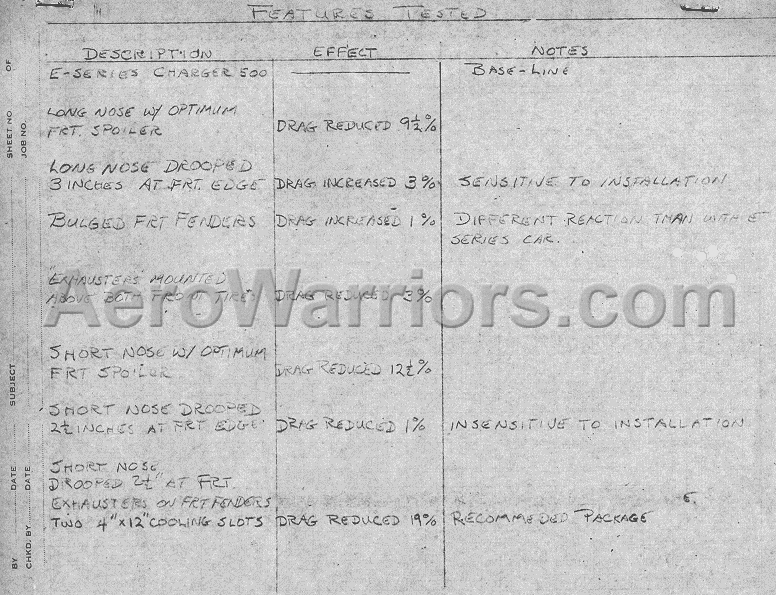 FEATURES TESTED
DESCRIPTION EFFECT NOTES
E-SERIES CHARGER 500 BASE-LINE
LONG NOSE W/ OPTIMUM
FRT. SPOILER DRAG REDUCED 9½%
LONG NOSE DROOPED
3 INCHES AT FRT. EDGE DRAG INCREASED 3% SENSITIVE TO INSTALLATION
BULGED FRT FENDERS DRAG INCREASED 1% DIFFERENT REACTION THAN WITH E
SERIES CAR.
"EXHAUSTERS" MOUNTED
ABOVE BOTH FRONT TIRES DRAG REDUCED 3%
AeroWarriors.com
SHORT NOSE W/ OPTIMUM
FRT SPOILER DRAG REDUCED 12½%
SHORT NOSE DROOPED
2½ INCHES AT FRT EDGE DRAG REDUCED 1% INSENSITIVE TO INSTALLATION
SHORT NOSE
DROOPED 2½" AT FRT.
EXHAUSTERS ON FRT FENDERS
TWO 4"x12" COOLING SLOTS DRAG REDUCED 19% RECOMMEDED PACKAGE
SHEET NO. OF
JOB NO.
SUBJECT
BY DATE
CHKD. BY DATE